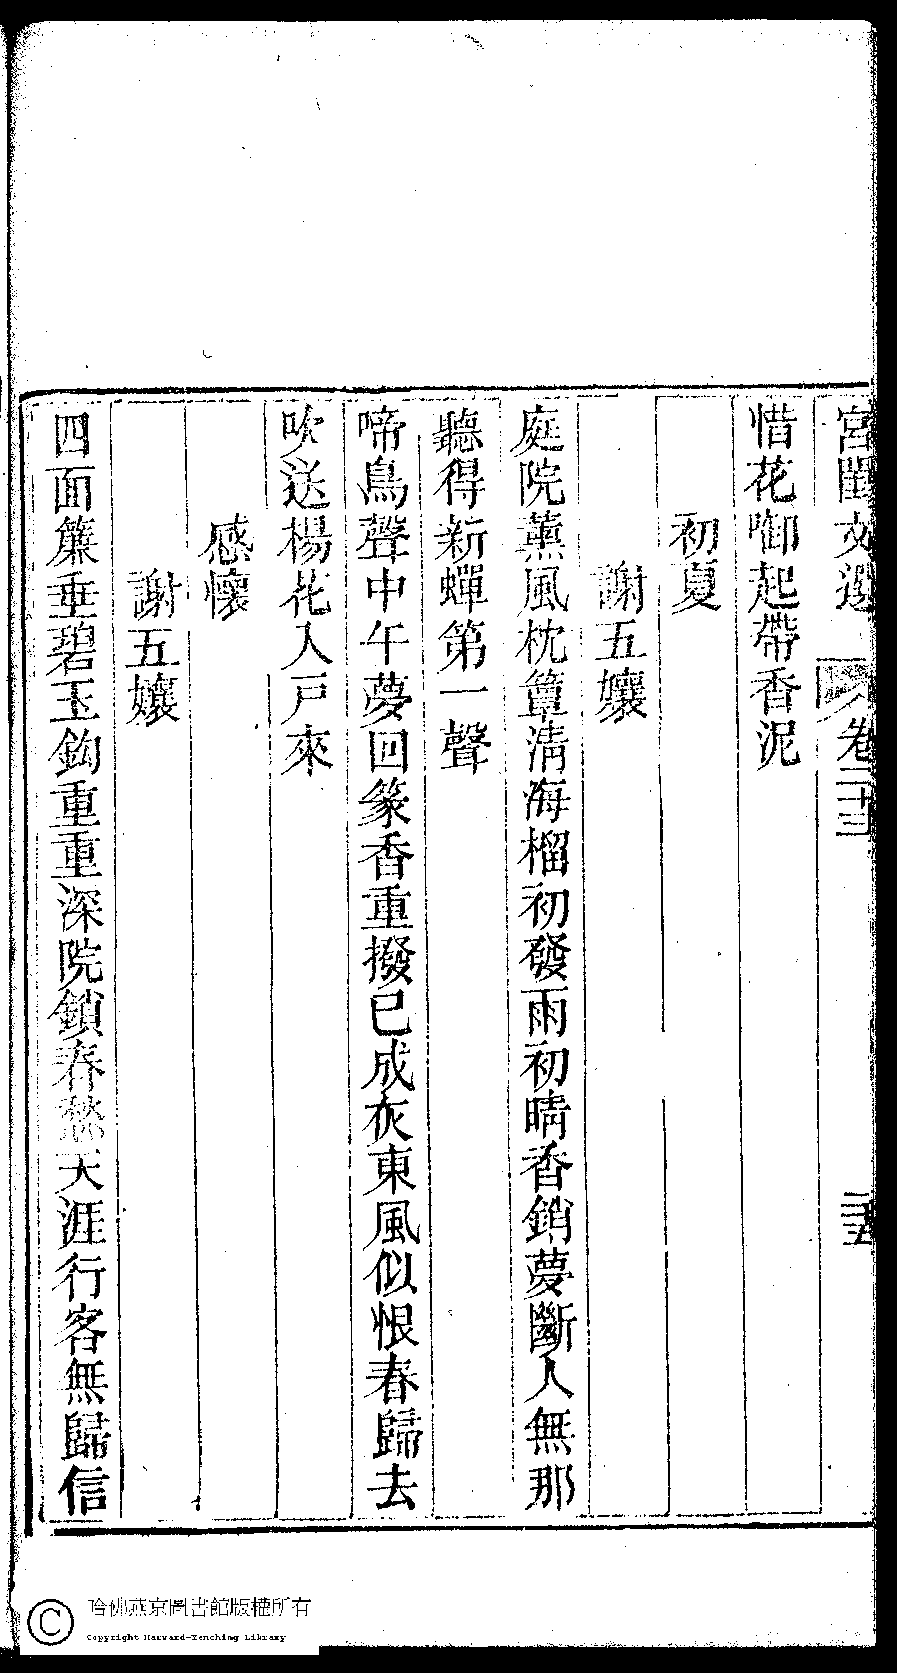 宮閨文選 卷二十三 二五
惜花啣起帶香泥
初夏
謝五孃
庭院薰風枕簟清海榴初發雨初晴香銷夢斷人無那
聽得新蟬第一聲
啼鳥聲中午夢回篆香重撥已成灰東風似恨春歸去
吹送楊花入戸來
感懷
謝五孃
四面簾垂碧玉鈎重重深院鎖春愁天涯行客無歸信
哈佛燕京圖書館版權所有
Copyright Harvard-Yenching Library